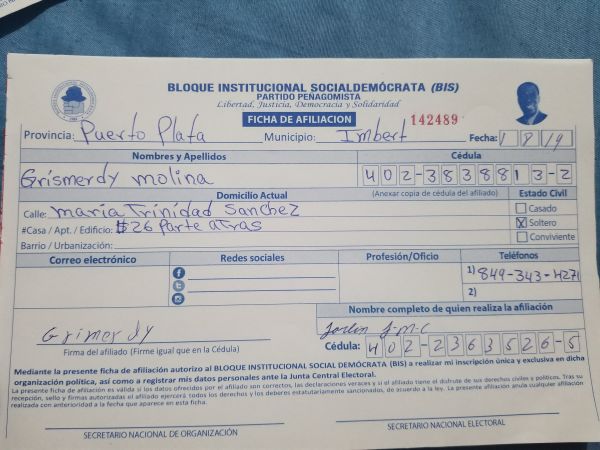 BLOQUE INSTITUCIONAL SOCIALDEMÓCRATA (BIS)
PARTIDO PEÑAGOMISTA
Libertad, Justicia, Democracia y Solidaridad
FICHA DE AFILIACION 142489
Provincia: Puerto Plata Municipio: Imbert Fecha: 1 8 19
Nombres y Apellidos Cédula
Grismerdy molina 402-3838813-2
Domicilio Actual (Anexar copia de cédula del afiliado) Estado Civil
Calle: maria Trinidad Sanchez Casado
#Casa / Apt. / Edificio: $26 Parte aTras X Soltero
Barrio / Urbanización: Conviviente
Correo electrónico Redes sociales Profesión/Oficio Teléfonos
1) 849-343-4271
2)
Nombre completo de quien realiza la afiliación
Grimerdy J-m-c
Firma del afiliado (Firme igual que en la Cédula) Cédula: 402-2363526-5
Mediante la presente ficha de afiliación autorizo al BLOQUE INSTITUCIONAL SOCIAL DEMÓCRATA (BIS) a realizar mi inscripción única y exclusiva en dicha
organización política, así como a registrar mis datos personales ante la Junta Central Electoral.
La presente ficha de afiliación es válida si los datos ofrecidos por el afiliado son correctos, las declaraciones veraces y si el afiliado tiene el disfrute de sus derechos civiles y políticos. Tras su
recepción, sello y firmas autorizadas el afiliado ejercerá todos los derechos y los deberes estatutariamente sancionados, de acuerdo a la ley. La presente afiliación anula cualquier afiliación
realizada con anterioridad a la fecha que aparece en esta ficha.
SECRETARIO NACIONAL DE ORGANIZACIÓN SECRETARIO NACIONAL ELECTORAL